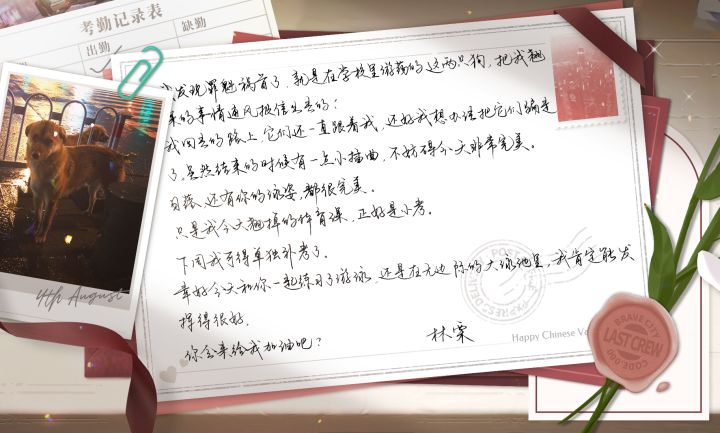 考勤记录表
出勤
缺勤
发现罪魁祸首了,就是在学校里游荡的这两只狗,把我翘
课的事情通风报信出去的!
我回去的路上它们还一直跟着我,还好我想办法把它们骗走
了。虽然结束的时候有一点小插曲,不妨碍今天非常完美。
日落,还有你的泳姿,都很完美。
只是我今天翘掉的体育课,正好是小考。
下周我可得单独补考了。
幸好今天和你一起练习了游泳,还是在无边际的大泳池里,我肯定能发
挥得很好。
你会来给我加油吧?
林栗
4th August
Happy Chinese Va
BRAVE CITY
LAST CREW
CODE:000